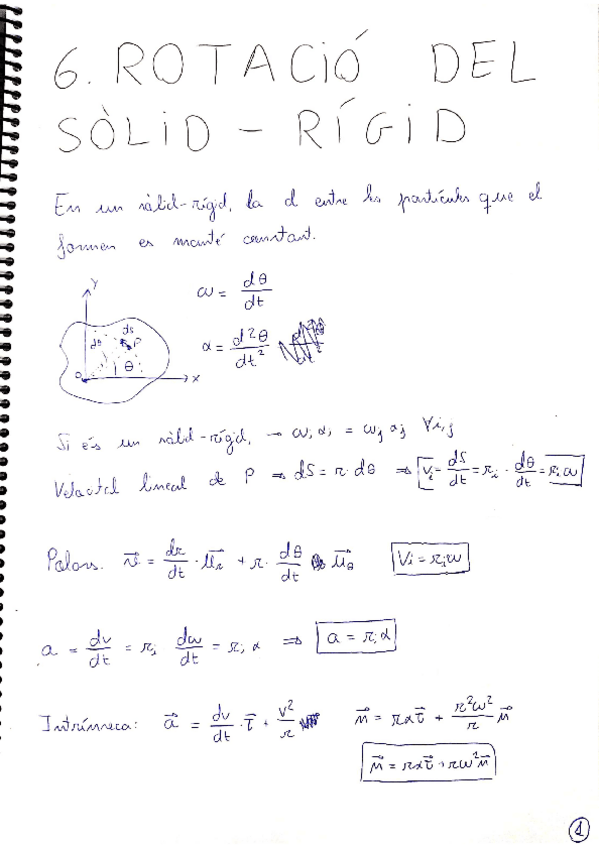 6. ROTACIÓ DEL
SÒLID - RÍGID
En un sòlid-rígid, la d entre les partícules que el
formen es manté constant.
ω = dθ/dt
α = d²θ/dt²
Y
dS
dθ
P
θ
O
X
Si és un sòlid-rígid, → ωᵢ αᵢ = ωⱼ αⱼ ∀i,j
Velocitat lineal de P ⇒ dS = r·dθ ⇒ vᵢ = dS/dt = rᵢ · dθ/dt = rᵢω
Polars. v⃗ = dr/dt · u⃗r + r · dθ/dt u⃗θ Vᵢ = rᵢω
a = dv/dt = rᵢ dω/dt = rᵢ α ⇒ a = rᵢα
Intrínseca: a⃗ = dv/dt · τ⃗ + v²/r n⃗ = rατ⃗ + r²ω²/r n⃗
n⃗ = rατ⃗ + rω²n⃗
1